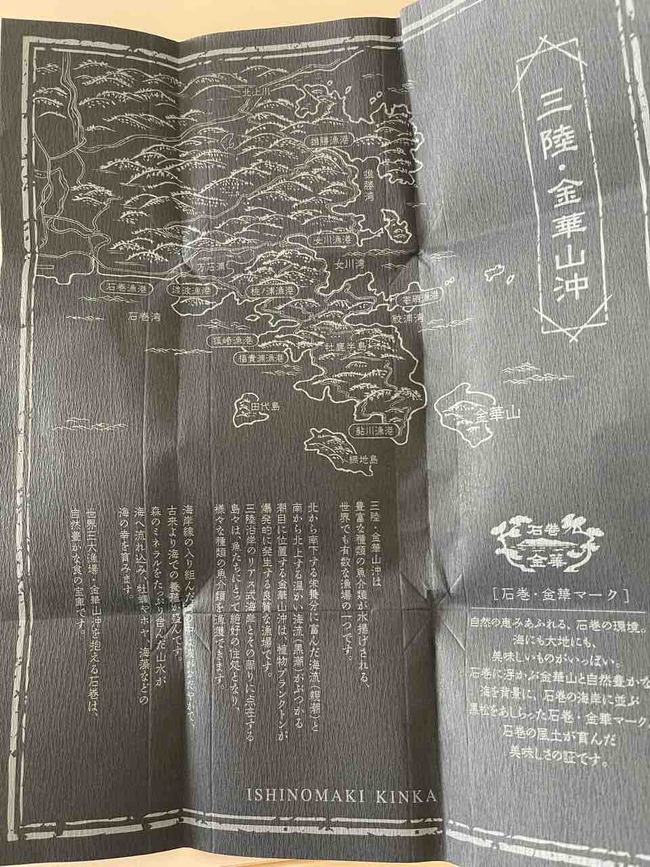 三陸・金華山沖
北上川
雄勝漁港
雄勝湾
女川漁港
女川湾
万石浦
石巻漁港
渡波漁港
桃ノ浦漁港
寄磯漁港
鮫浦湾
石巻湾
狐崎漁港
牡鹿半島
福貴浦漁港
田代島
金華山
鮎川漁港
網地島
三陸・金華山沖は
豊富な種類の魚介類が水揚げされる、
世界でも有数な漁場の一つです。
北から南下する栄養分に富んだ海流(親潮)と
南から北上する温かい海流(黒潮)がぶつかる
潮目に位置する金華山沖は、植物プランクトンが
爆発的に発生する良質な漁場です。
三陸沿岸のリアス式海岸とその周りに点在する
島々は、魚たちにとって絶好の住処となり、
様々な種類の魚介類を漁獲できます。
海岸線の入り組んだ
古来より海での養殖が盛んです。
森のミネラルをたっぷり含んだ山水が
海へ流れ込み、牡蠣やホヤ、海藻などの
海の幸を育みます。
世界三大漁場・金華山沖を抱える石巻は、
自然豊かな食の宝庫です。
石巻
金華
[石巻・金華マーク]
自然の恵みあふれる、石巻の環境。
海にも大地にも、
美味しいものがいっぱい。
石巻に浮かぶ金華山と自然豊かな
海を背景に、石巻の海岸に並ぶ
黒松をあしらった石巻・金華マーク
石巻の風土が育んだ
美味しさの証です。
ISHINOMAKI KINKA